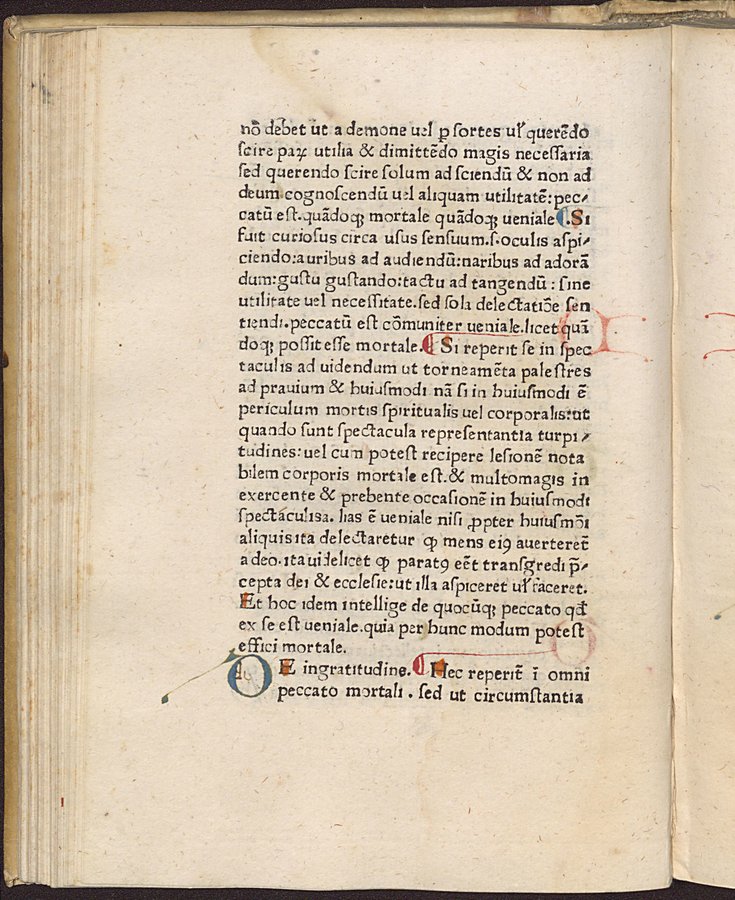 nō debet ut a demone uel ꝑ sortes uł querēdo
scire paꝝ utilia & dimittēdo magis necessaria
sed querendo scire solum ad sciendū & non ad
deum cognoscendū uel aliquam utilitatē: pec⸗
catū est. quādoqꝫ mortale quādoqꝫ ueniale ¶. Si
fuit curiosus circa usus sensuum. s. oculis aspi⸗
ciendo: auribus ad audiendū: naribus ad adorā
dum: gustu gustando: tactu ad tangendū : sine
utilitate uel necessitate. sed sola delectatiōe sen
tiendi. peccatū est cōmuniter ueniale. licet quā
doqꝫ possit esse mortale. ¶ Si reperit se in spec
taculis ad uidendum ut torneamēta palestres
ad prauium & huiusmodi nā si in huiusmodi ē
periculum mortis spiritualis uel corporalis: ut
quando sunt spectacula representantia turpi⸗
tudines: uel cum potest recipere lesionē nota
bilem corporis mortale est. & multomagis in
exercente & prebente occasionē in huiusmodi
spectaculisa. lias ē ueniale nisi ꝓpter huiusmōi
aliquis ita delectaretur ꝙ mens eiꝰ auerteret̄
a deo. ita uidelicet ꝙ paratꝰ eēt transgredi p̄⸗
cepta dei & ecclesie: ut illa aspiceret uł faceret.
Et hoc idem intellige de quocūqꝫ peccato qđ
ex se est ueniale. quia per hunc modum potest
effici mortale.
DE ingratitudine. ¶ Hec reperit̄ ī omni
peccato mortali . sed ut circumstantia